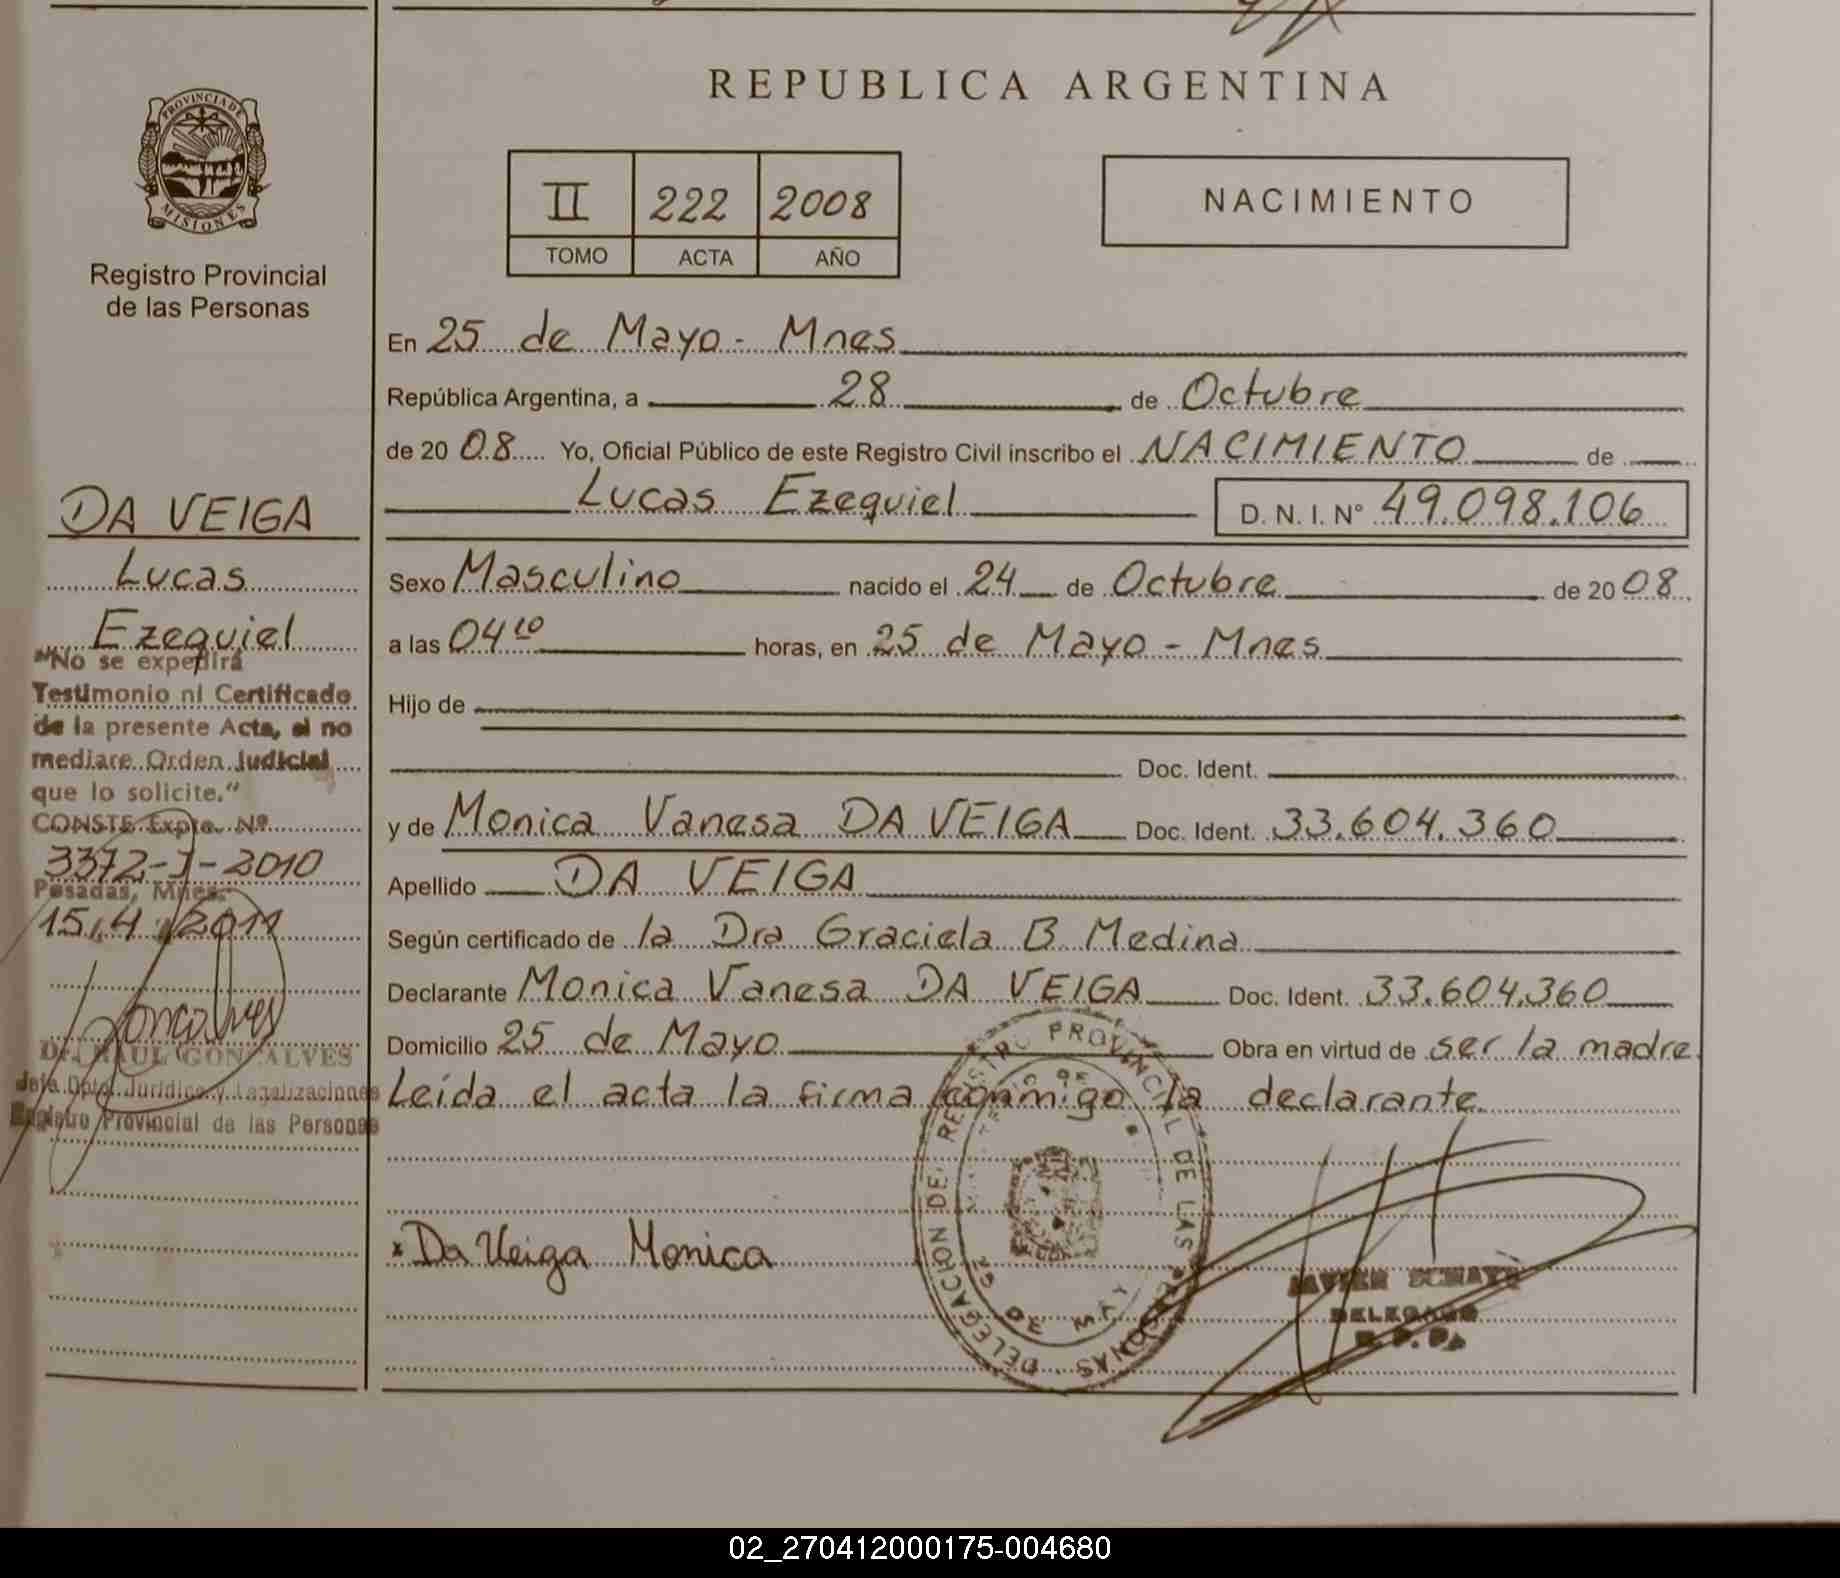 REPUBLICA ARGENTINA
PROVINCIA DE
MISIONES
Registro Provincial
de las Personas
II 222 2008
TOMO ACTA AÑO
NACIMIENTO
En 25 de Mayo - Mnes
República Argentina, a 28 de Octubre
de 20 08 Yo, Oficial Público de este Registro Civil inscribo el NACIMIENTO de
Lucas Ezequiel D. N. I. Nº 49.098.106
Sexo Masculino nacido el 24 de Octubre de 20 08
a las 04 10 horas, en 25 de Mayo - Mnes
Hijo de
Doc. Ident.
y de Monica Vanesa DA VEIGA Doc. Ident. 33.604.360
Apellido DA VEIGA
Según certificado de la Dra Graciela B Medina
Declarante Monica Vanesa DA VEIGA Doc. Ident. 33.604.360
Domicilio 25 de Mayo Obra en virtud de ser la madre
Leída el acta la firma conmigo la declarante
x Da Veiga Monica
DELEGACION DEL REGISTRO PROVINCIAL DE LAS PERSONAS
25 DE MAYO
DELEGADO
DA VEIGA
Lucas
Ezequiel
"No se expedirá
Testimonio ni Certificado
de la presente Acta, si no
mediare Orden Judicial
que lo solicite."
CONSTE Expte. Nº
3372-J-2010
Posadas, Mnes.
15, 4, 2011
Goncalves
Dr. RAUL GONCALVES
Jefe Dpto. Jurídico y Legalizaciones
Registro Provincial de las Personas
02_270412000175-004680